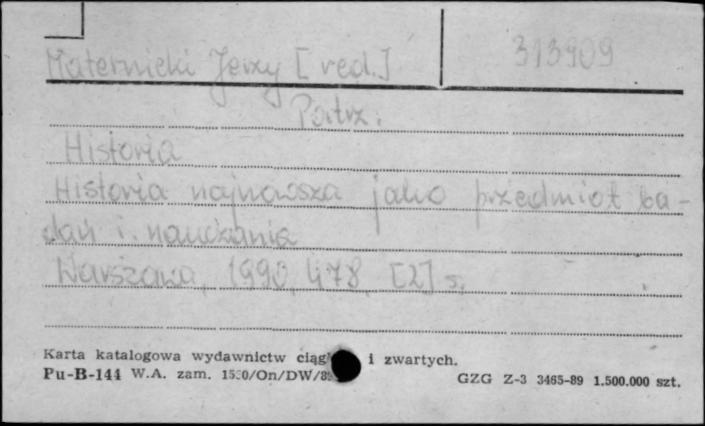 Maternicki Jerzy [red.] 313909
Patrz:
Historia
Historia najnowsza jako przedmiot ba-
dań i nauczania
Warszawa, 1990, 478, [2] s.
Karta katalogowa wydawnictw ciąg i zwartych.
Pu-B-144 W.A. zam. 1530/On/DW/8 GZG Z-3 3465-89 1.500.000 szt.